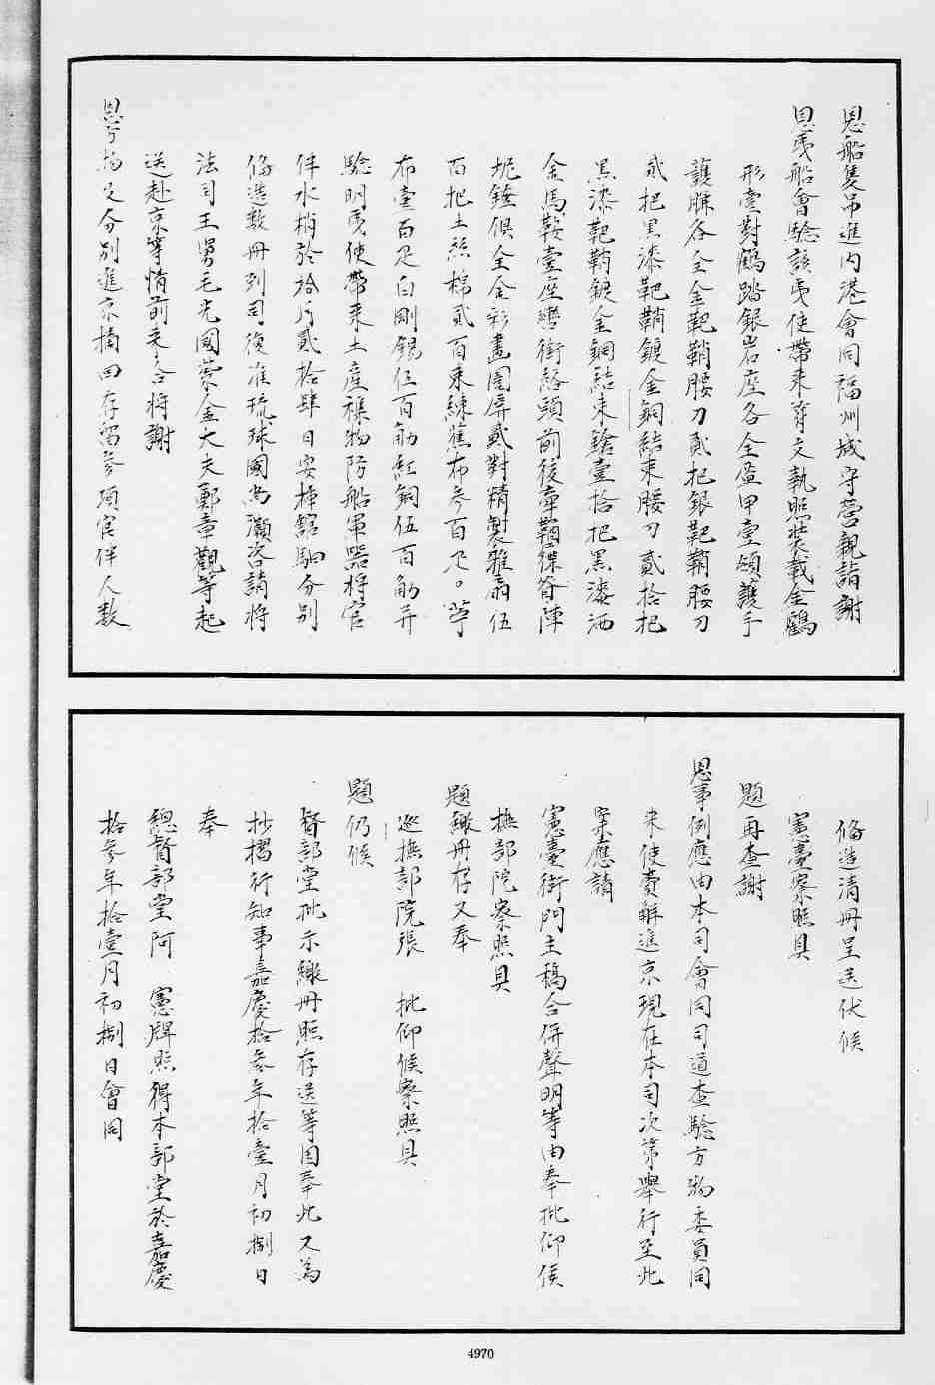 恩船隻吊進內港會同福州城守營親詣謝
恩夷船會驗該夷使帶來符文執照裝載金鶴
形壹對鶴踏銀岩座各全盔甲壹領護手
護臁各全金靶鞘腰刀貳把銀靶鞘腰刀
貳把黑漆靶鞘鍍金銅結束腰刀貳拾把
黑漆靶鞘鍍金銅結束鎗壹拾把黑漆洒
金馬鞍壹座轡銜絡頭前後牽鞦屜脊障
坭鐙俱全金彩畫圍屏貳對精製雅扇伍
百把土絲棉貳百束練蕉布參百疋苧
布壹百疋白剛錫伍百觔紅銅伍百觔并
驗明夷使帶來土產裸物防船軍器將官
伴水梢於拾月貳拾肆日安揷館馹分別
俻造数冊到司復准琉球國尚灝咨請將
法司王舅毛光國紫金大夫鄭章觀等起
送赴京等情前來合將謝
恩方物及分別進京摘回存留參項官伴人数
俻造清冊呈送伏候
憲臺察照具
題再查謝
恩事例應由本司會同司道查驗方物委員同
來使賫觧進京現在本司次第舉行至此
案應請
憲臺衙門主稿合併聲明等由奉批仰候
撫部院察照具
題繳冊存又奉
巡撫部院張 批仰候察照具
題仍候
督部堂批示繳冊照存送等因奉此又為
抄摺行知事嘉慶拾參年拾壹月初捌日
奉
總督部堂阿 憲牌照得本部堂於嘉慶
拾參年拾壹月初捌日會同
4970